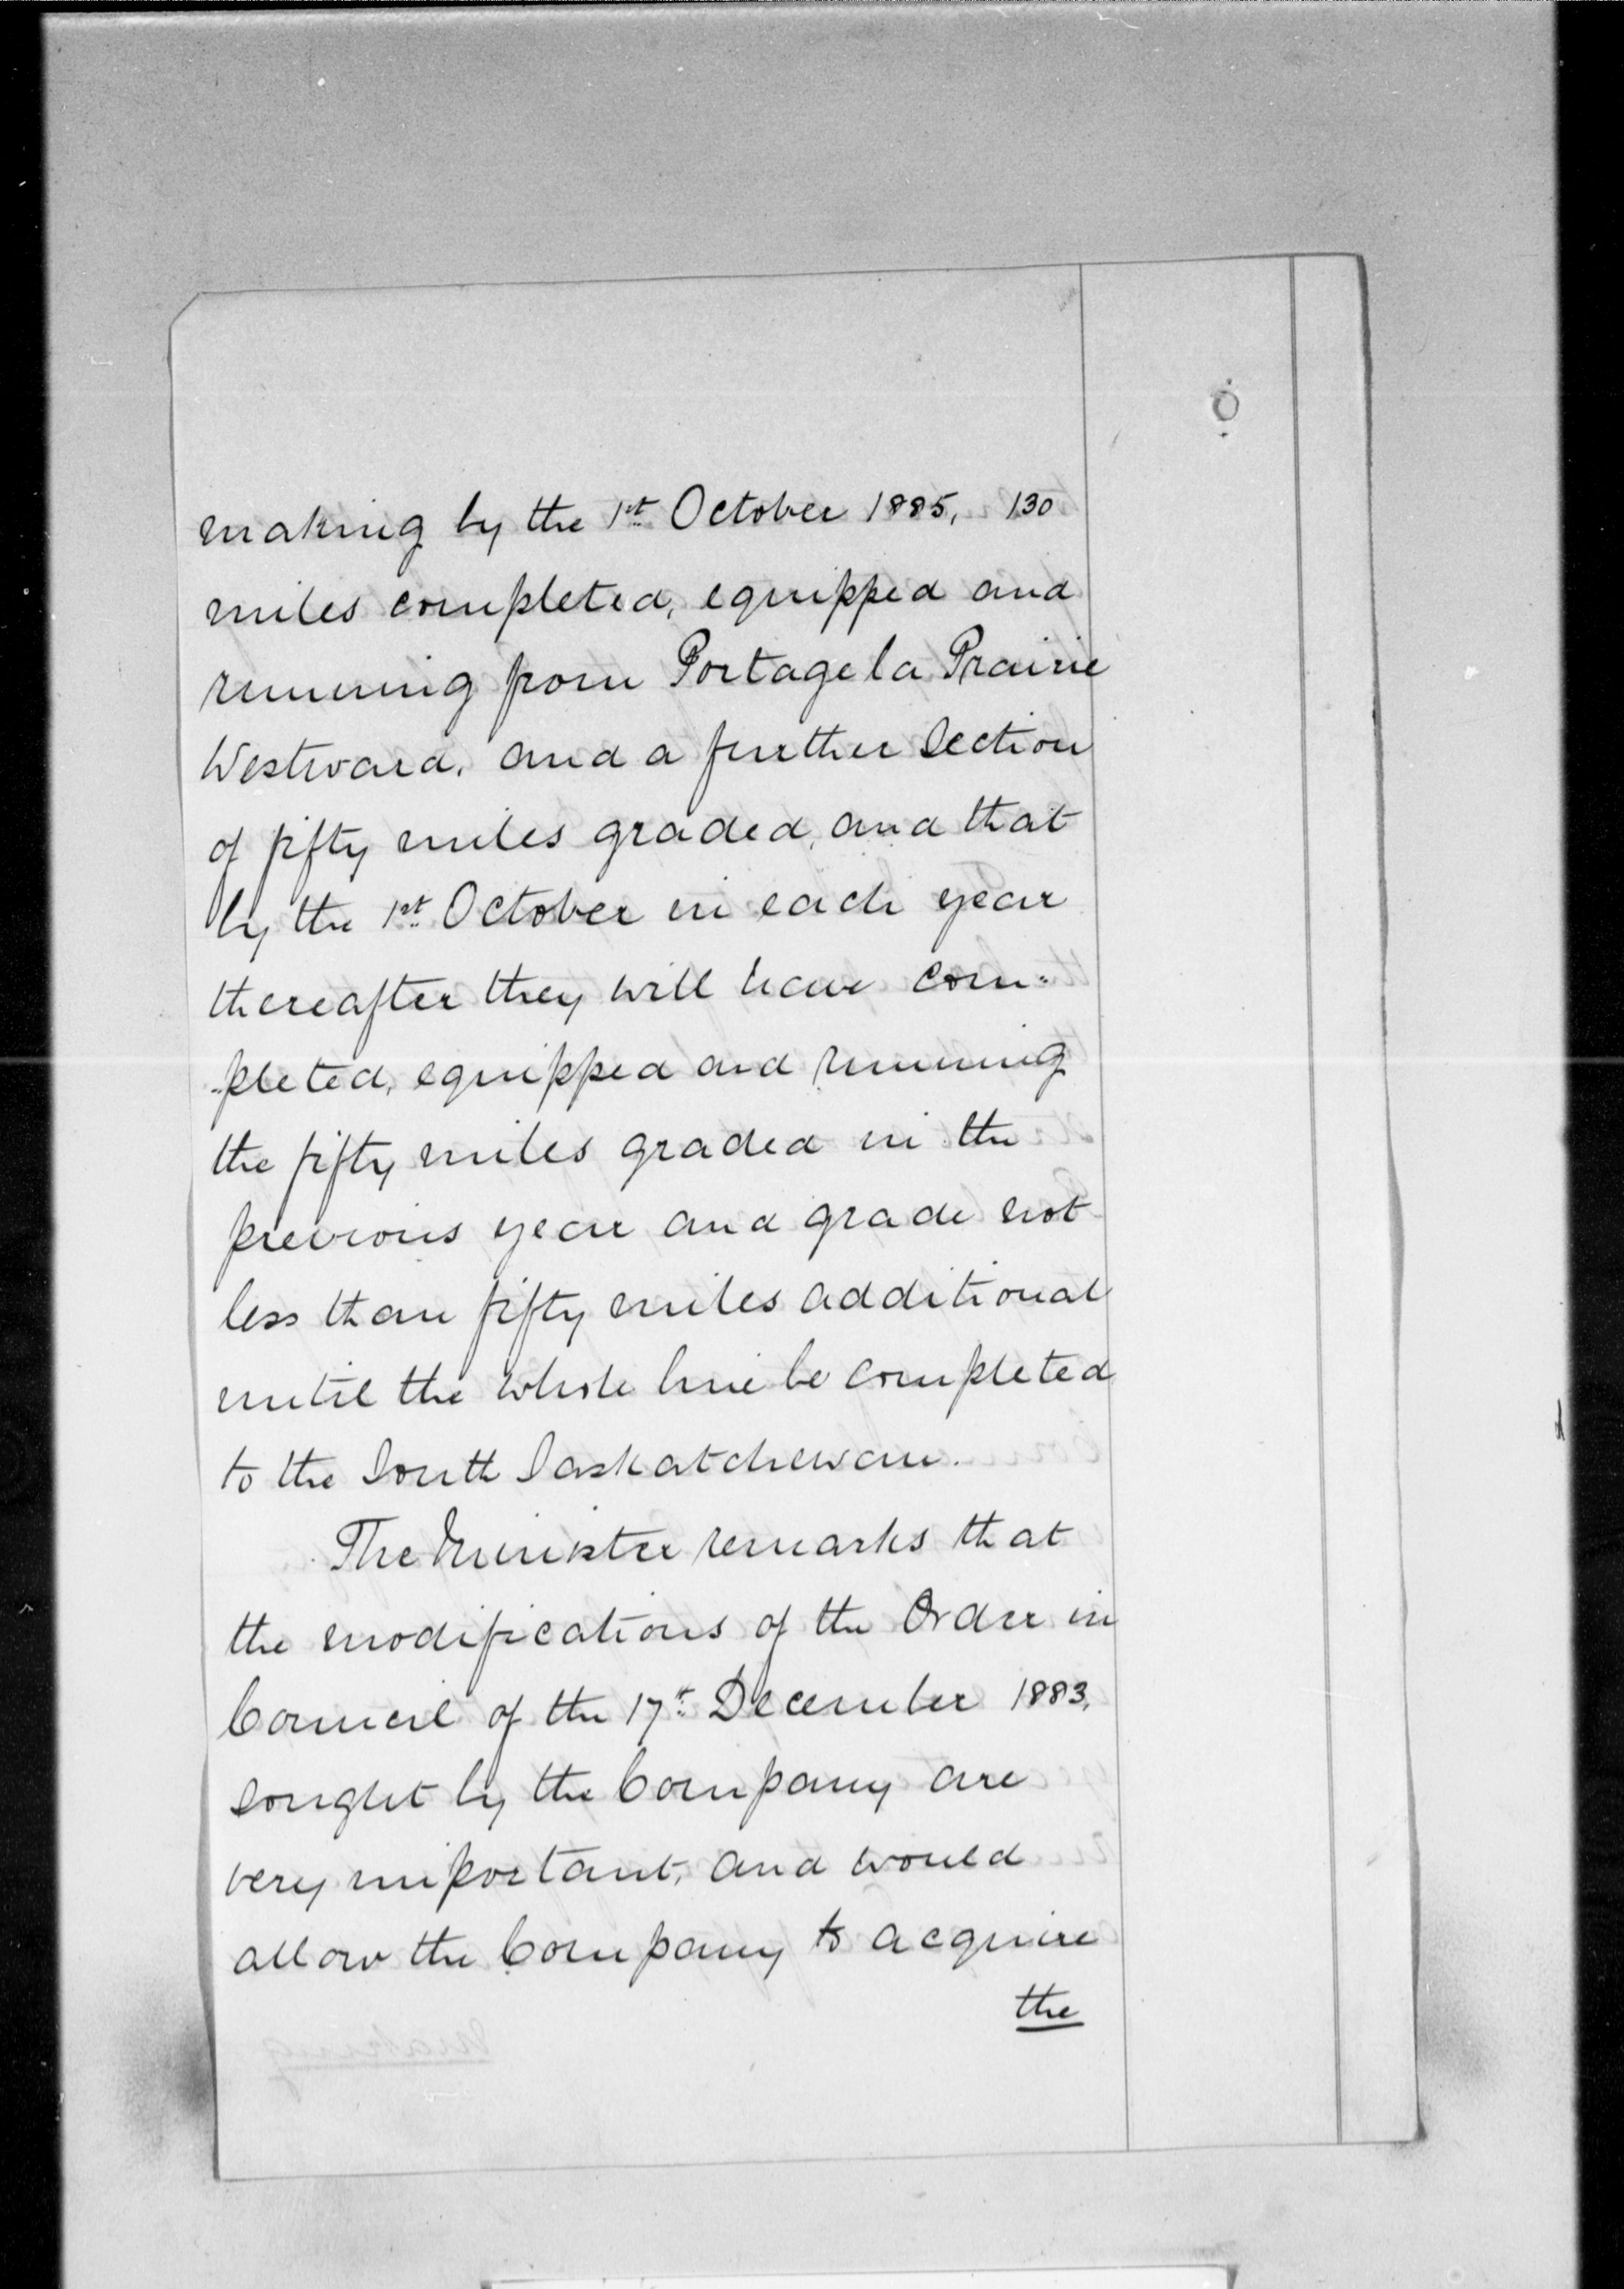 making by the 1st October 1885, 130
miles completed, equipped and
running from Portage la Prairie
Westward, and a further section
of fifty miles graded, and that
by the 1st October in each year
thereafter they will have com-
-pleted, equipped and running
the fifty miles graded in the
previous year and grade not
less than fifty miles additional
until the whole line be completed
to the South Saskatchewan.
The Minister remarks that
the modifications of the Order in
Council of the 17t December 1883,
sought by the Company are
very important, and would
allow the Company to acquire
the